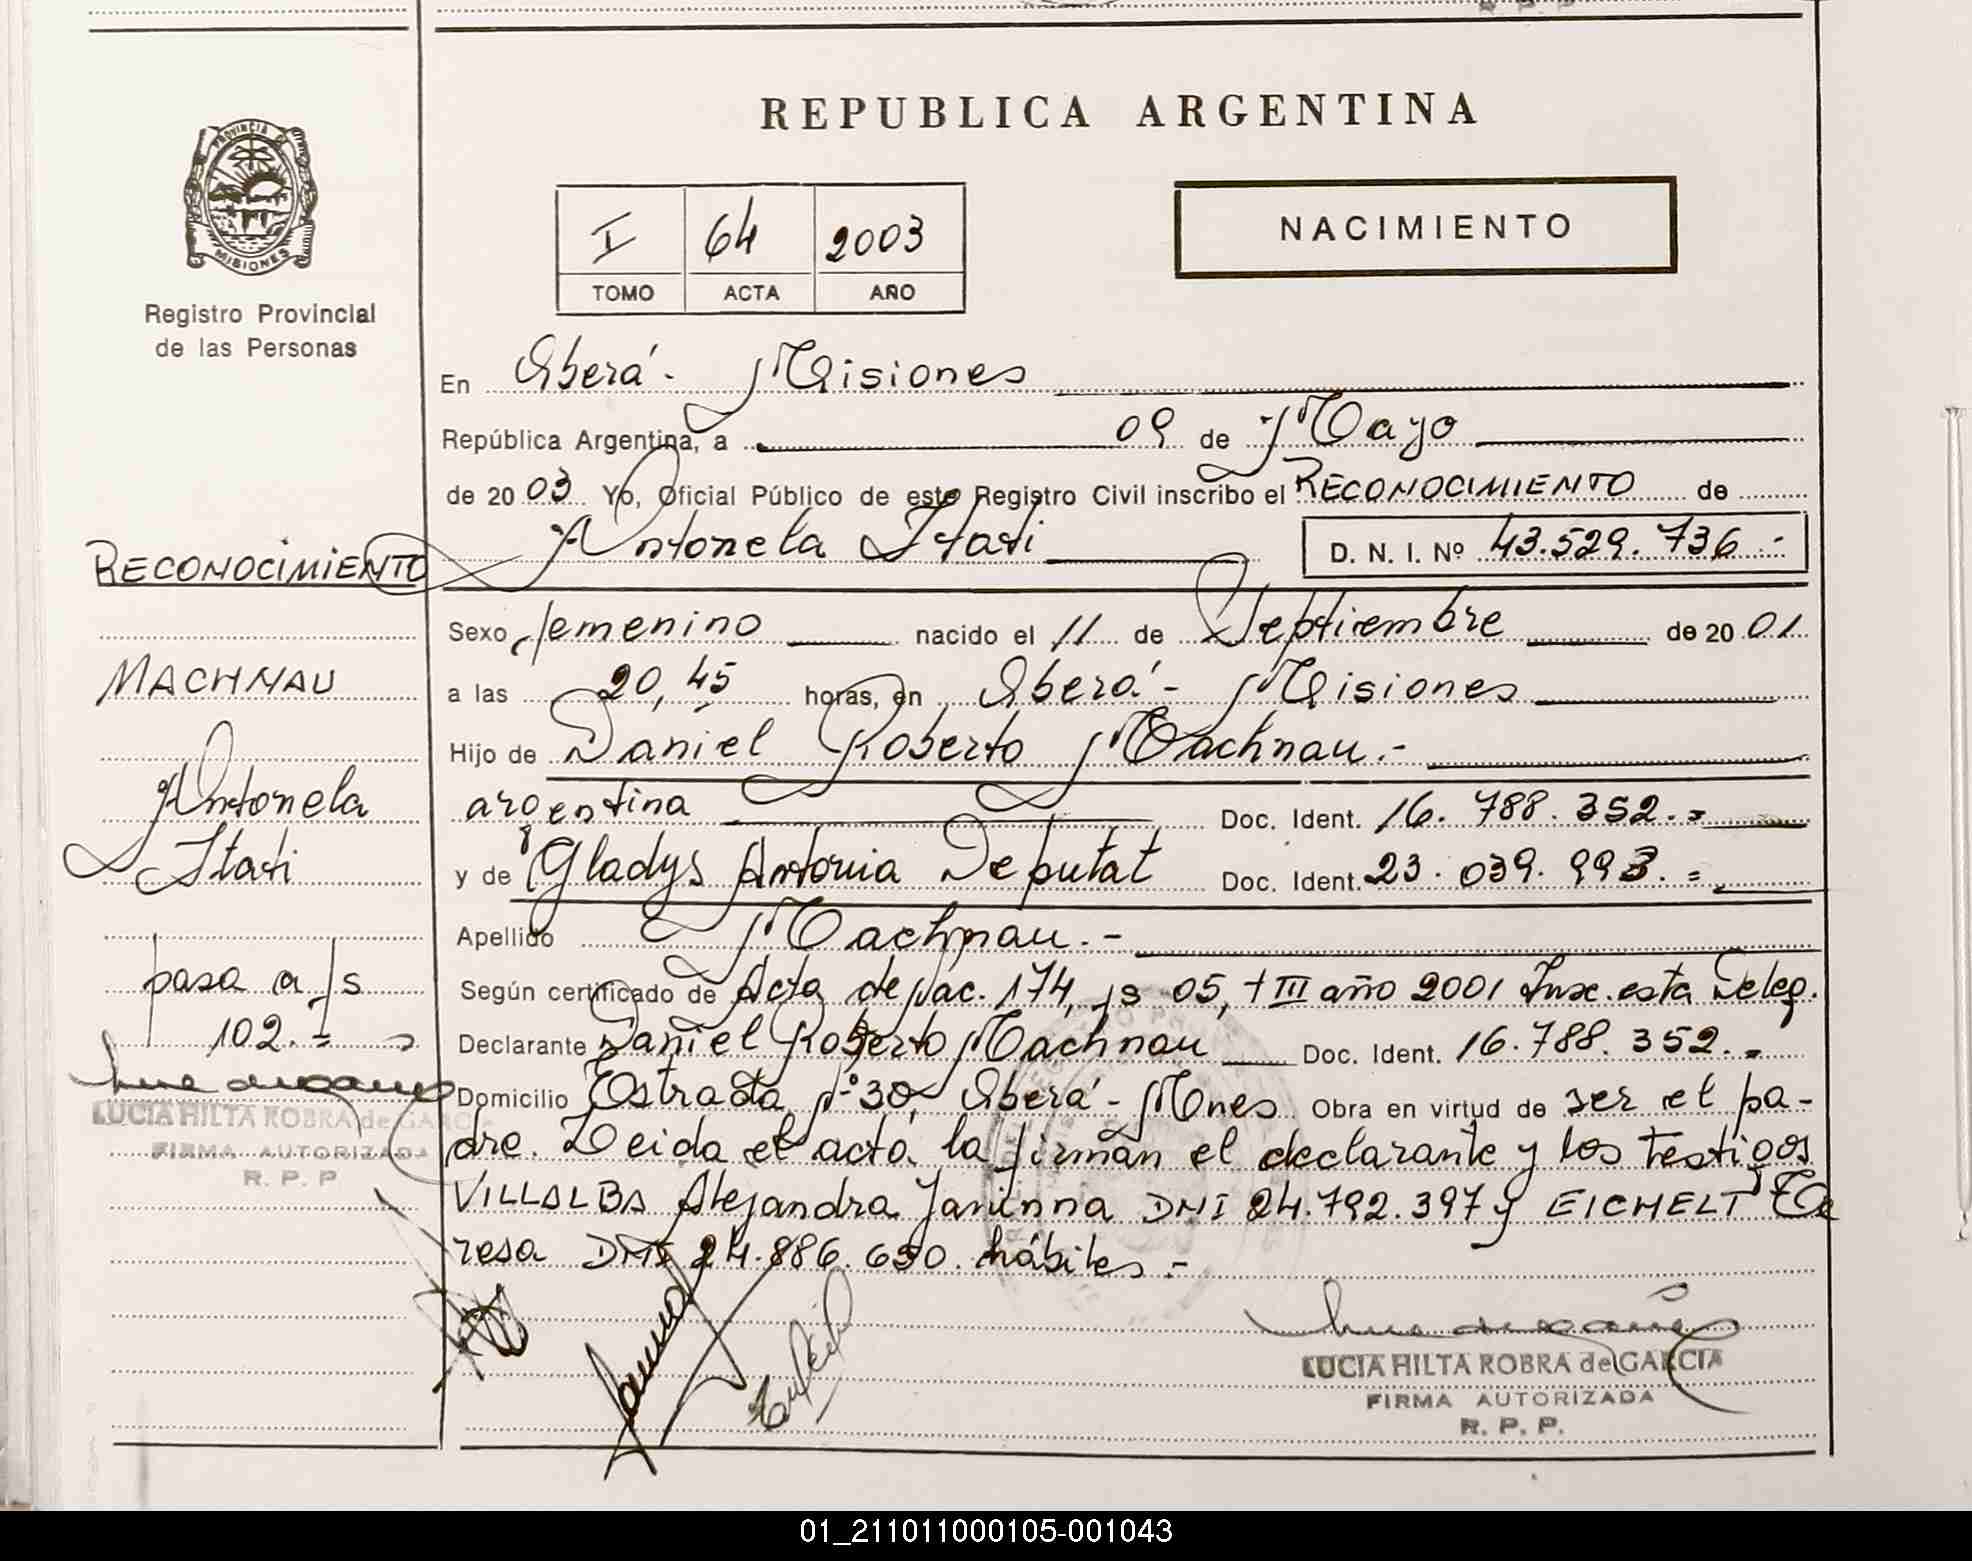 PROVINCIA DE
MISIONES
Registro Provincial
de las Personas
RECONOCIMIENTO
MACHNAU
Antonela
Itati
pasa a fs
102.=
LUCIA HILTA ROBRA de GARCIA
FIRMA AUTORIZADA
R. P. P
REPUBLICA ARGENTINA
I 64 2003
TOMO ACTA AÑO
NACIMIENTO
En Oberá - Misiones
República Argentina, a 09 de Mayo
de 20 03 Yo, Oficial Público de este Registro Civil inscribo el RECONOCIMIENTO de
Antonela Itati D. N. I. Nº 43.529.736.-
Sexo femenino nacido el 11 de Septiembre de 20 01
a las 20,45 horas, en Oberá - Misiones
Hijo de Daniel Roberto Machnau.-
argentina Doc. Ident. 16.788.352.=
y de Gladys Antonia Deputat Doc. Ident. 23.039.993.=
Apellido Machnau.-
Según certificado de Acta de Nac. 174, fs 05, t III año 2001 Insc. esta Deleg.
Declarante Daniel Roberto Machnau Doc. Ident. 16.788.352.=
Domicilio Estrada Nº 30, Oberá - Mnes Obra en virtud de ser el pa-
dre. Leida el acta la firman el declarante y los testigos
VILLALBA Alejandra Janinna DNI 24.792.397 y EICHELT Te
resa DNI 24.886.650. hábiles.-
LUCIA HILTA ROBRA de GARCIA
FIRMA AUTORIZADA
R. P. P.
01_211011000105-001043